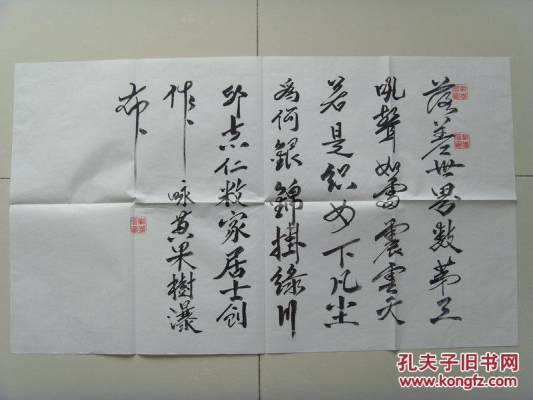 落差世界数第三
吼聲如雷震雲天
若是织女下凡尘
為何銀錦掛綠川
志仁数家居士创
作、咏黄果樹瀑
布、
孔夫子旧书网
www.kongfz.com